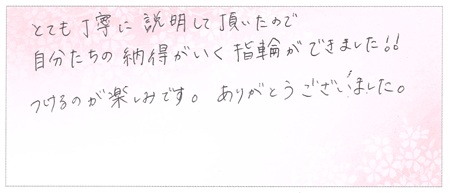 とても丁寧に説明して頂いたので
自分たちの納得がいく指輪ができました!!
つけるのが楽しみです。ありがとうございました。